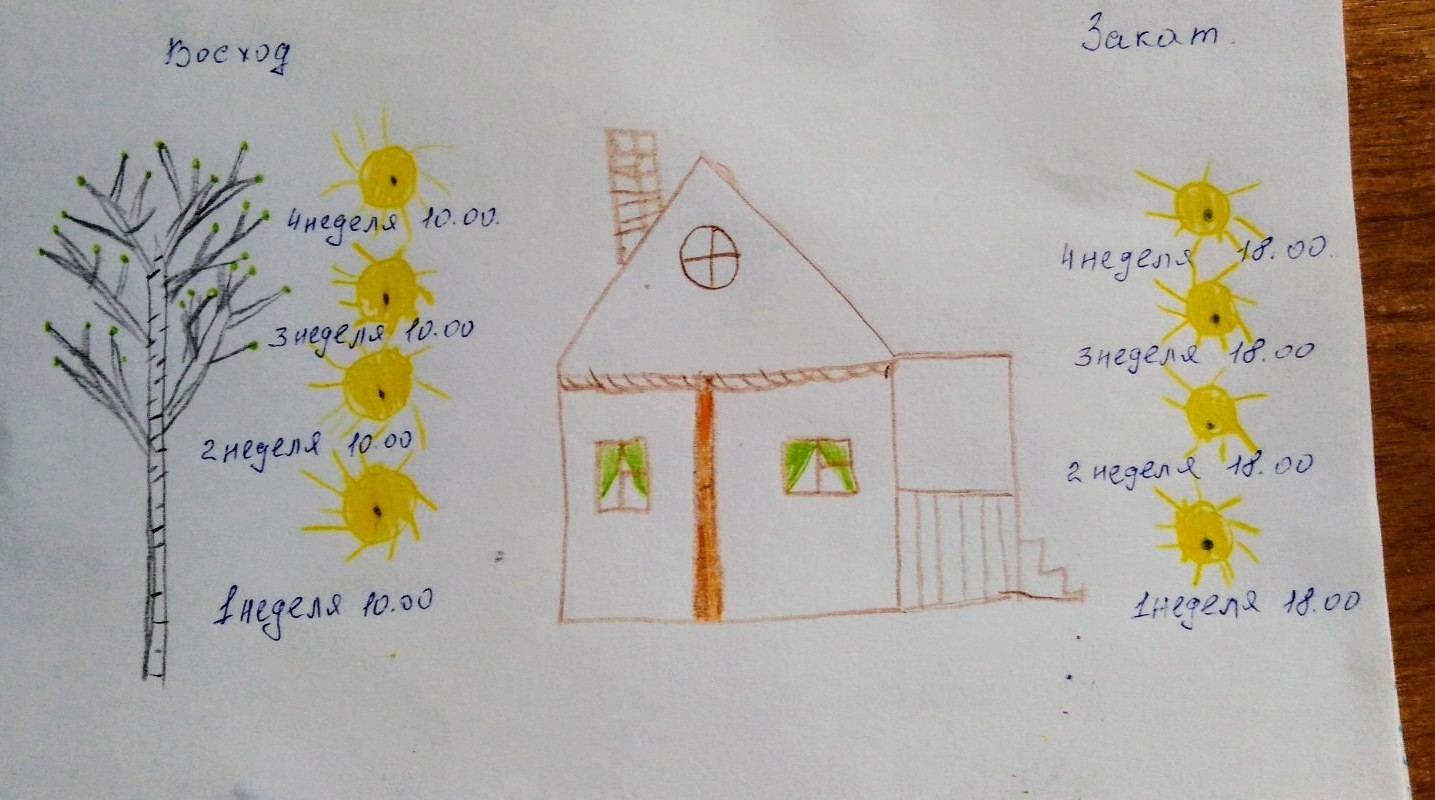 Восход
4 неделя 10.00.
3 неделя 10.00
2 неделя 10.00
1 неделя 10.00
Закат.
4 неделя 18.00.
3 неделя 18.00
2 неделя 18.00
1 неделя 18.00